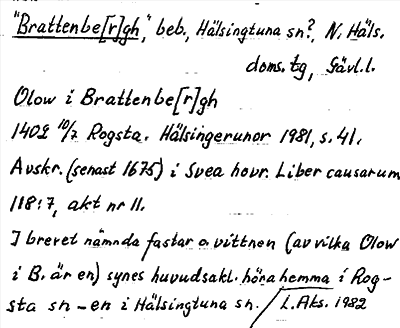 "Brattenbe[r]gh," beb., Hälsingtuna sn?, N. Häls.
doms.tg, Gävl.l.
Olow i Brattenbe[r]gh
1402 10/7 Rogsta. Hälsingerunor 1981, s. 41.
Avskr. (senast 1675) i Svea hovr. Liber causarum
118:7, akt nr 11.
I brevet nämnda fastar o. vittnen (av vilka Olow
i B. är en) synes huvudsakl. höra hemma i Rog-
sta sn – en i Hälsingtuna sn. / L. Aks. 1982